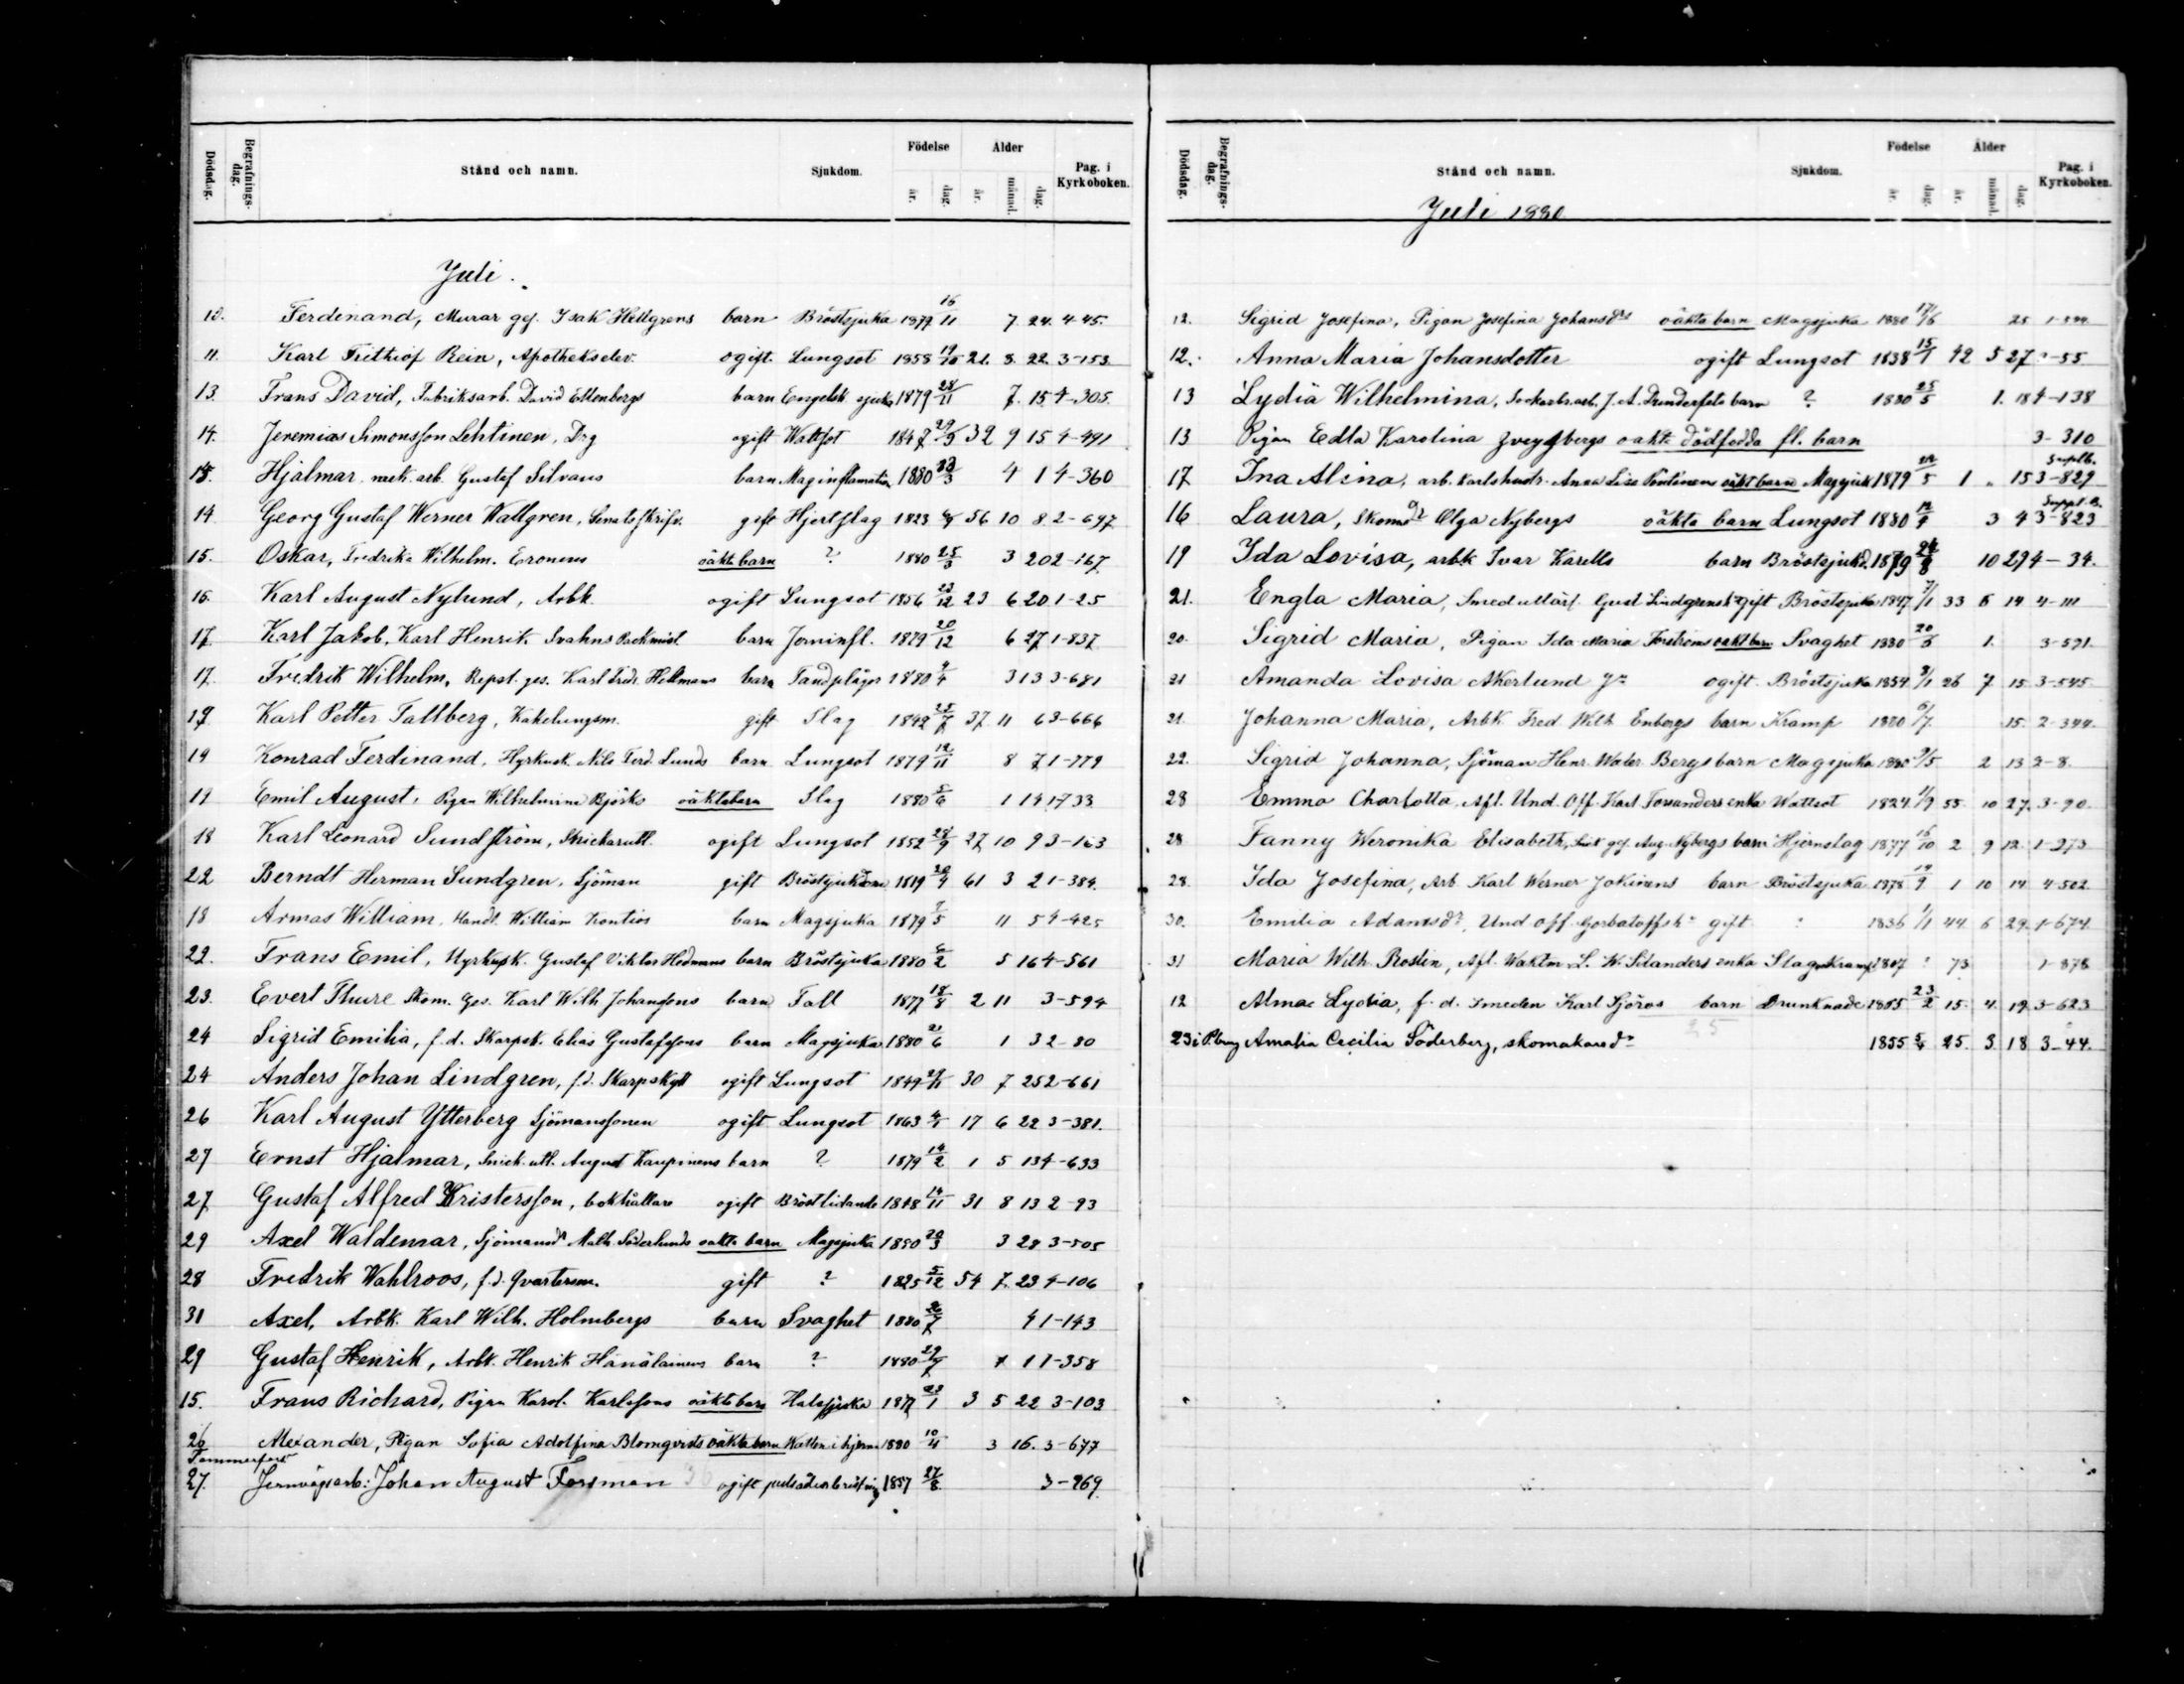 Dödsdag. Begrafnings-dag. Stånd och namn. Sjukdom. Födelse år. dag. Ålder år. månad. dag. Pag. i Kyrkoboken.
Juli.
10. Ferdinand, Murar ges. Isak Hellgrens barn Bröstsjuka 1879 16/11 7 24. 4-45.
11. Karl Frithiof Rein, Apothekselev. ogift. Lungsot 1858 19/10 21. 8. 22. 3-153.
13. Frans David, Fabriksarb. David Ettenbergs barn Engelsk sjuka 1879 28/11 7. 15. 4-305.
14. Jeremias Simonsson Lehtinen, Drg ogift Wattsot 1847 29/9 32 9 15 4-491
15. Hjalmar mek. arb. Gustaf Silvans barn Maginflamation 1880 /3 4 1 4-360
14 Georg Gustaf Werner Wallgren, Senatsskrifv. gift Hjertslag 1823 56 10 8. 2-697
15. Oskar, Fredrika Wilhelm. Eronens oäkta barn ? 1880 25/3 3 20 2-167
16. Karl August Nylund, Arbk. ogift Lungsot 1856 23/12 23 6 20 1-25
17. Karl Jakob, Karl Henrik Svahns Packmäst. barn Jerninfl. 1879 20/12 6 27 1-837
17. Fredrik Wilhelm, Repsl. ges. Karl Fredr. Hellmans barn Tandplågor 1880 4/4 3 13 3-681
19 Karl Petter Tallberg, Kakelungsm. gift Slag 1842 25/7 37 11 6 3-666
19 Konrad Ferdinand, Hyrkusk. Nils Ferd. Lunds barn Lungsot 1879 12/11 8 7 1-779
19 Emil August, Pigan Wilhelmina Björks oäkta barn Slag 1880 5/6 1 14 1-733
18 Karl Leonard Sundström, Snickarutl. ogift Lungsot 1852 28/9 27 10 9 3-163
22 Berndt Herman Sundgren, Sjöman gift Bröstsjukdom 1819 20/4 61 3 2 1-384.
18 Armas William, Handl. William Kontios barn Magsjuka 1879 7/5 11 5 4-425
22. Frans Emil, Hyrkusk. Gustaf Viktor Hedmans barn Bröstsjuka 1880 6/2 5 16 4-561
23. Evert Thure Skom. ges. Karl Wilh. Johanssons barn Fall 1877 18/8 2 11 3-594
24 Sigrid Emilia, f.d. Skarpsk. Elias Gustafssons barn Magsjuka 1880 21/6 1 3 2-80
24 Anders Johan Lindgren, f.d. Skarpskytt ogift Lungsot 1849 29/11 30 7 25 2-661
26 Karl August Ytterberg Sjömanssonen ogift Lungsot 1863 4/1 17 6 22 3-381.
27 Ernst Hjalmar, Snick. utl. August Kaupinens barn ? 1879 14/2 1 5 13 4-633
27 Gustaf Alfred Kristersson, bokhållare ogift Bröstlidande 1848 14/11 31 8 13 2-93
29 Axel Waldemar, Sjömansdr Math. Söderlunds oäkta barn Magsjuka 1880 20/3 3 28 3-505
28 Fredrik Wahlroos, f.d. Qvarterm. gift ? 1825 5/12 54 7. 23 4-106
31 Axel, Arbk. Karl Wilh. Holmbergs barn Svaghet 1880 /7 4 1-143
29 Gustaf Henrik, Arbk. Henrik Hänäläinens barn ? 1880 29/7 1 1-358
15. Frans Richard, Pigan Karol. Karlssons oäkta barn Halssjuka 1877 23/1 3 5 22 3-103
26 Tammerfors Alexander, Pigan Sofia Adolfina Blomqvists oäkta barn Watten i hjernan 1880 10/4 3 16. 3-677
27. Jernvägsarb. Johan August Forsman ogift 1857 27/8 3-269.
Dödsdag. Begrafnings-dag. Stånd och namn. Sjukdom. Födelse år. dag. Ålder år. månad. dag. Pag. i Kyrkoboken.
Juli 1880
12. Sigrid Josefina, Pigan Josefina Johansdrs oäkta barn Magsjuka 1880 17/6 25
12. Anna Maria Johansdotter ogift Lungsot 1838 15/1 42 5 27
13 Lydia Wilhelmina, Sockerbr.arb. J. A. barn ? 1880 25/5 1. 18 4-138
13 Pigan Edla Karolina Zveygbergs oäkta dödfödda fl. barn 3-310
17 Ina Alina, arb. karlshustr. Anna Lisa oäkt barn Magsjuk 1879 /5 1 " 15 Suplb. 3-829
16 Laura, Skomdr Olga Nybergs oäkta barn Lungsot 1880 12/4 3 4 Suppl. B. 3-823
19 Ida Lovisa, arbk Ivar Karells barn Bröstsjukd. 1879 /8 10 29 4-34.
21. Engla Maria, Smed utlärl. Gust. Lindgrens h. gift Bröstsjuka 1847 7/1 33 6 14 4-111
20. Sigrid Maria, Pigan Ida Maria Forströms oäkt barn Svaghet 1880 20/6 1. 3-591.
21 Amanda Lovisa Åkerlund Jn ogift. Bröstsjuka 1854 26 7 15 3-545.
21. Johanna Maria, Arbk Fred. Wilh Enbergs barn Kramp 1880 6/7 15. 2-344.
22. Sigrid Johanna, Sjöman Henr. Waler. Bergs barn Magsjuka 1880 9/5 2 13 2-8.
28 Emma Charlotta, Afl. Und. Off. Karl Forsanders enka Wattsot 1824 1/9 55 10 27. 3-90.
28 Fanny Weronika Elisabeth, ges. Aug. Nybergs barn Hjernslag 1877 16/10 2 9 12. 1-273
28. Ida Josefina, Arb. Karl Werner Jokinens barn Bröstsjuka 1878 14/9 1 10 14 4-502
30. Emilia Adamsdr, Und off. Gorbatoffs h. gift 1836 1/1 44 6 29. 1-674.
31 Maria Wilh. Roslin, Afl. Waktm. L. W. Silanders enka Slag 1807 ? 73 1-878
12 Alma Lydia, f. d. smeden Karl Sjöros barn Drunknade 1865 23/2 15. 4. 19. 3-623
23 Amalia Cecilia Söderberg, skomakaredr 1855 25. 3 18 3-44.